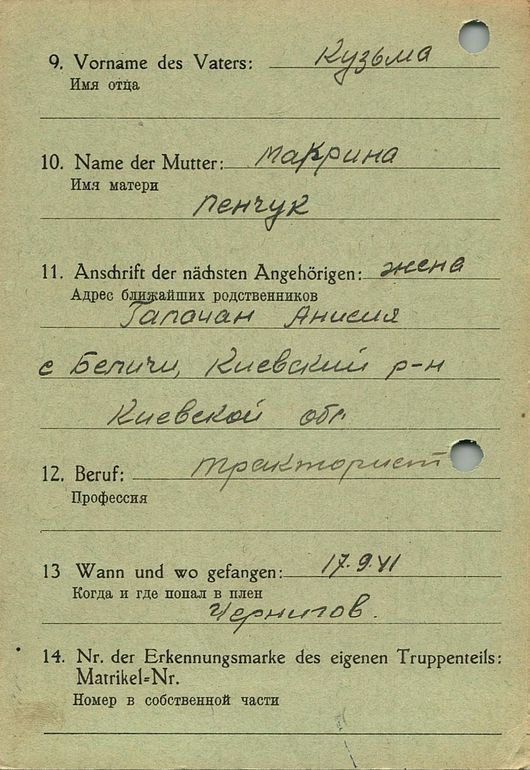 9. Vorname des Vaters: Кузьма
Имя отца
10. Name der Mutter: Макрина
Имя матери
Пенчук
11. Anschrift der nächsten Angehörigen: жена
Адрес ближайших родственников
Гапочан Анисия
с Беличи, Киевский р-н
Киевской обл
12. Beruf: тракторист
Профессия
13 Wann und wo gefangen: 17.9.41
Когда и где попал в плен
Чернигов.
14. Nr. der Erkennungsmarke des eigenen Truppenteils:
Matrikel=Nr.
Номер в собственной части